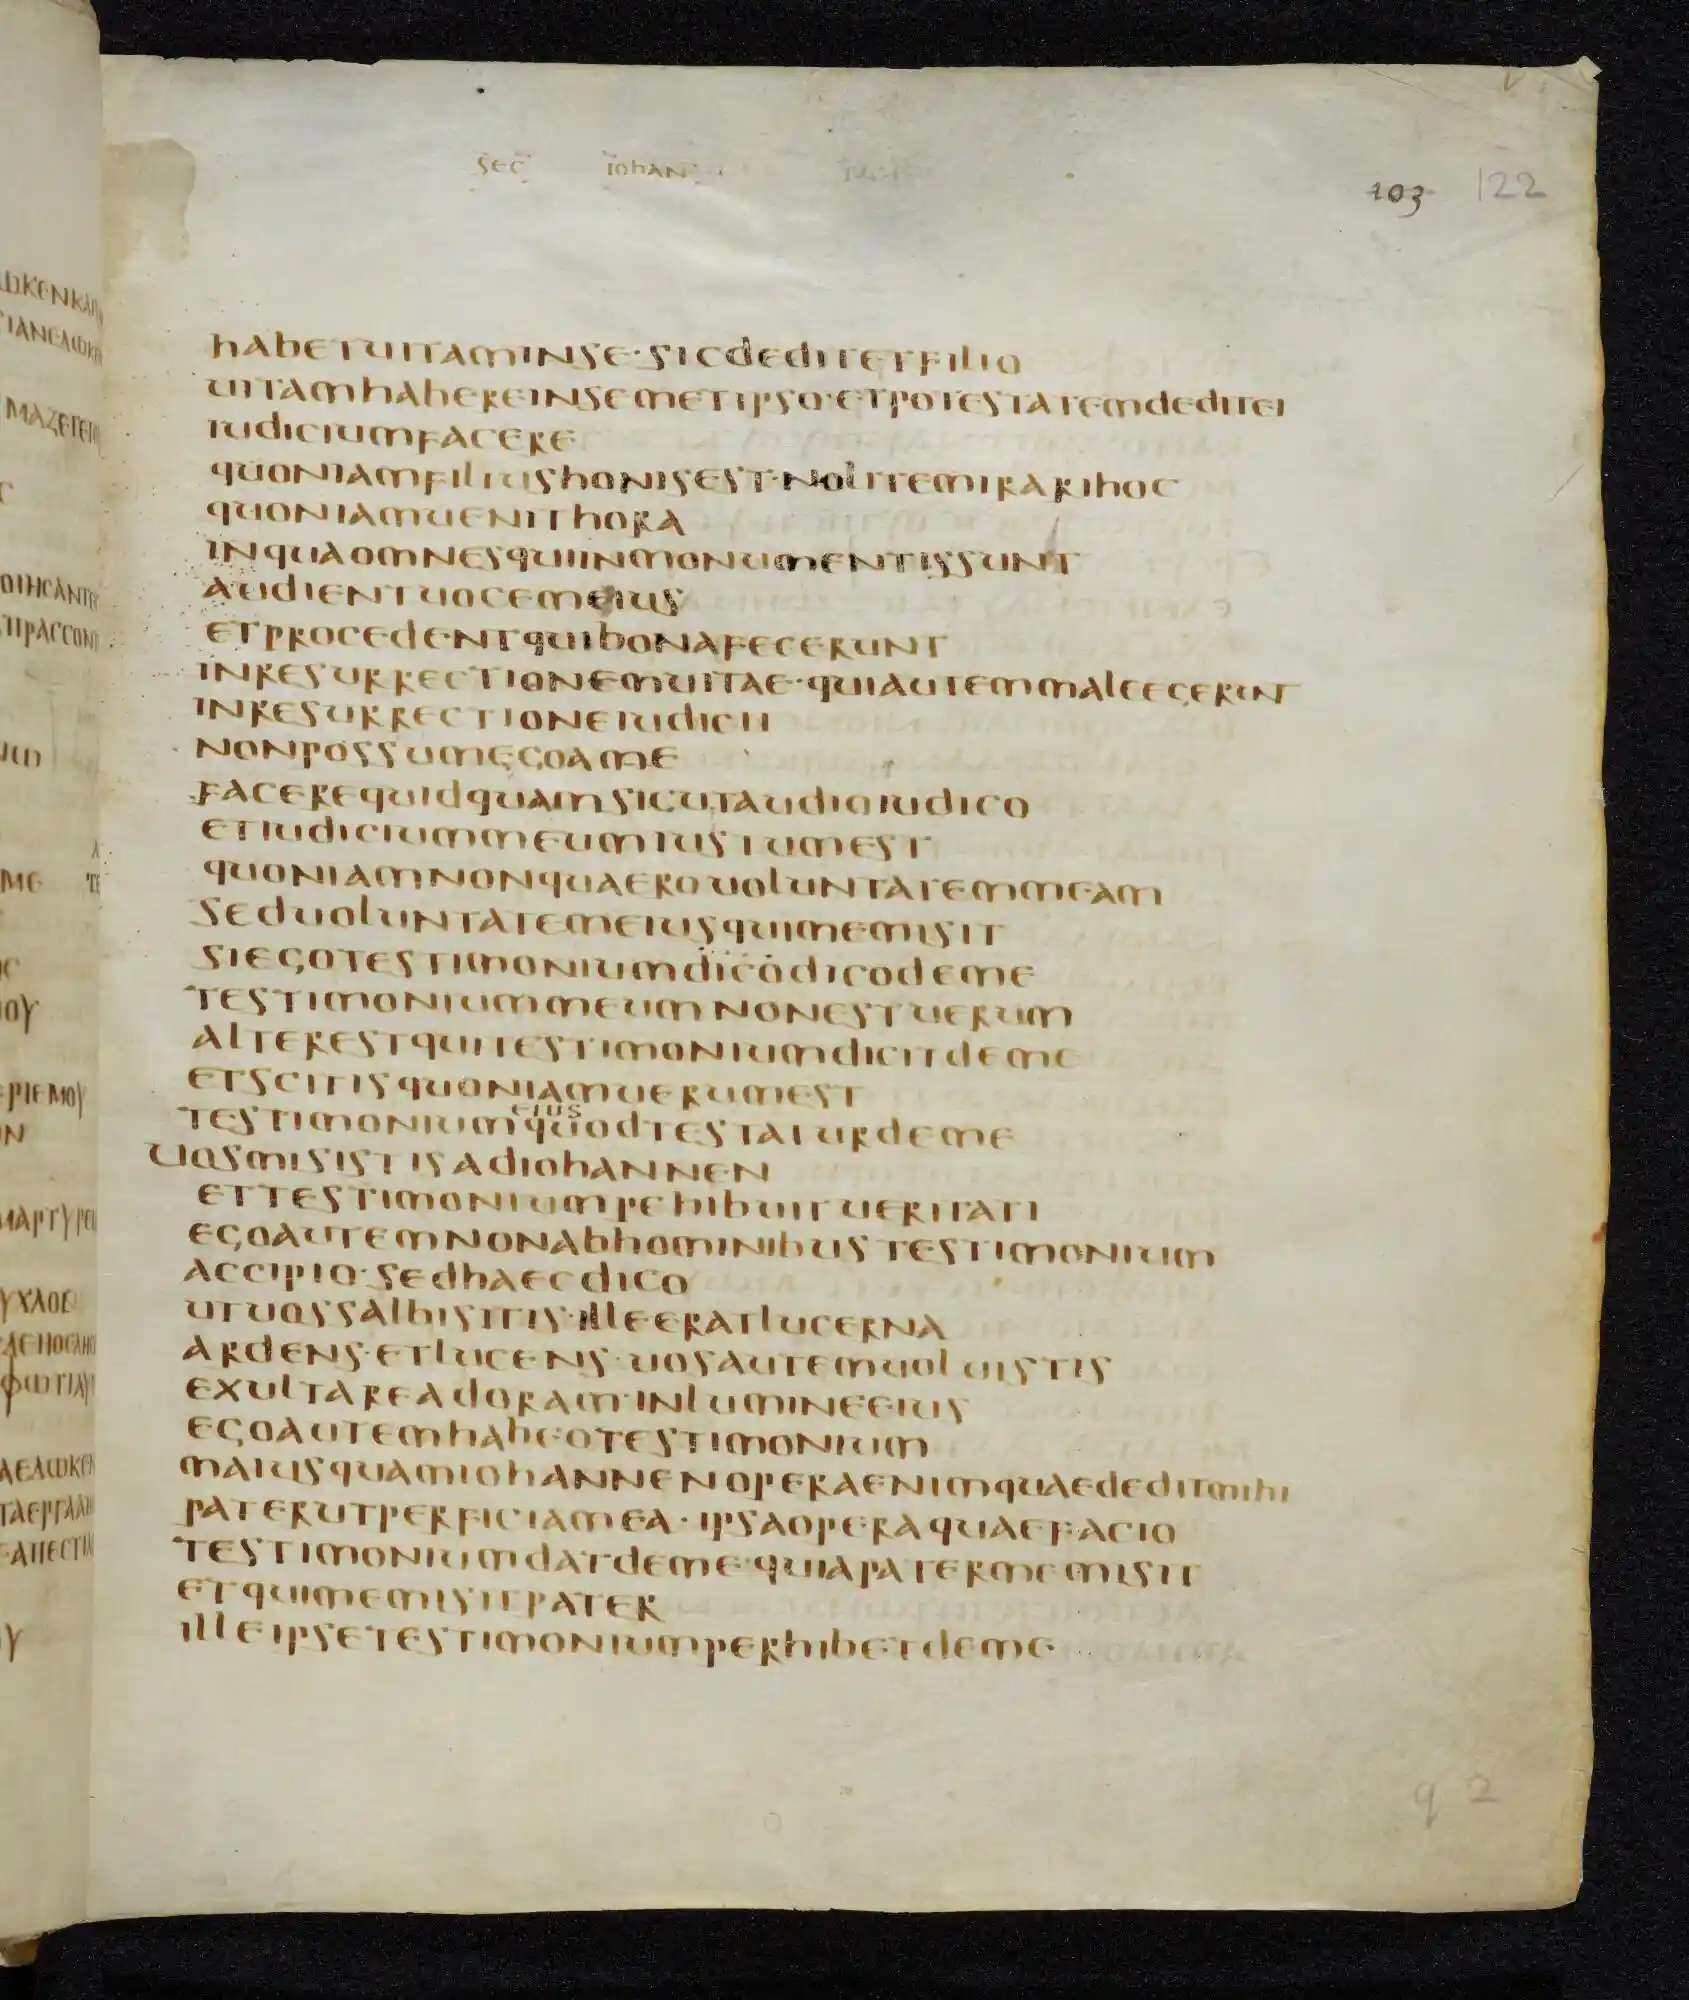 sec iohan
103 122
habetuitaminse·sicdeditetfilio
uitamhabereinsemetipso·etpotestatemdeditei
iudiciumfacere
quoniamfiliushonisest·nolitemirarihoc
quoniamuenithora
inquaomnesquiinmonumentissunt
audientuocemeius
etprocedentquibonafecerunt
inresurrectionemuitae·quiautemmalefecerunt
inresurrectioneiudicii
nonpossumegoame
facerequidquamsicutaudioiudico
etiudiciummeumiustumest
quoniamnonquaerouoluntatemmeam
seduoluntatemeiusquimemisit
siegotestimoniumdicodicodeme
testimoniummeumnonestuerum
alterestquitestimoniumdicitdeme
etscitisquoniamuerumest
eius
testimoniumquodtestaturdeme
uosmisistisadiohannen
ettestimoniumpehibuitueritati
egoautemnonabhominibustestimonium
accipio·sedhaecdico
utuossalbisitis·illeeratlucerna
ardens·etlucens·uosautemuoluistis
exultareadoram·inlumineeius
egoautemhabeotestimonium
maiusquamiohannenoperaenimquaededitmihi
paterutperficiamea·ipsaoperaquaefacio
testimoniumdatdeme·quiapatermemisit
etquimemisitpater
illeipsetestimoniumperhibetdeme
q 2